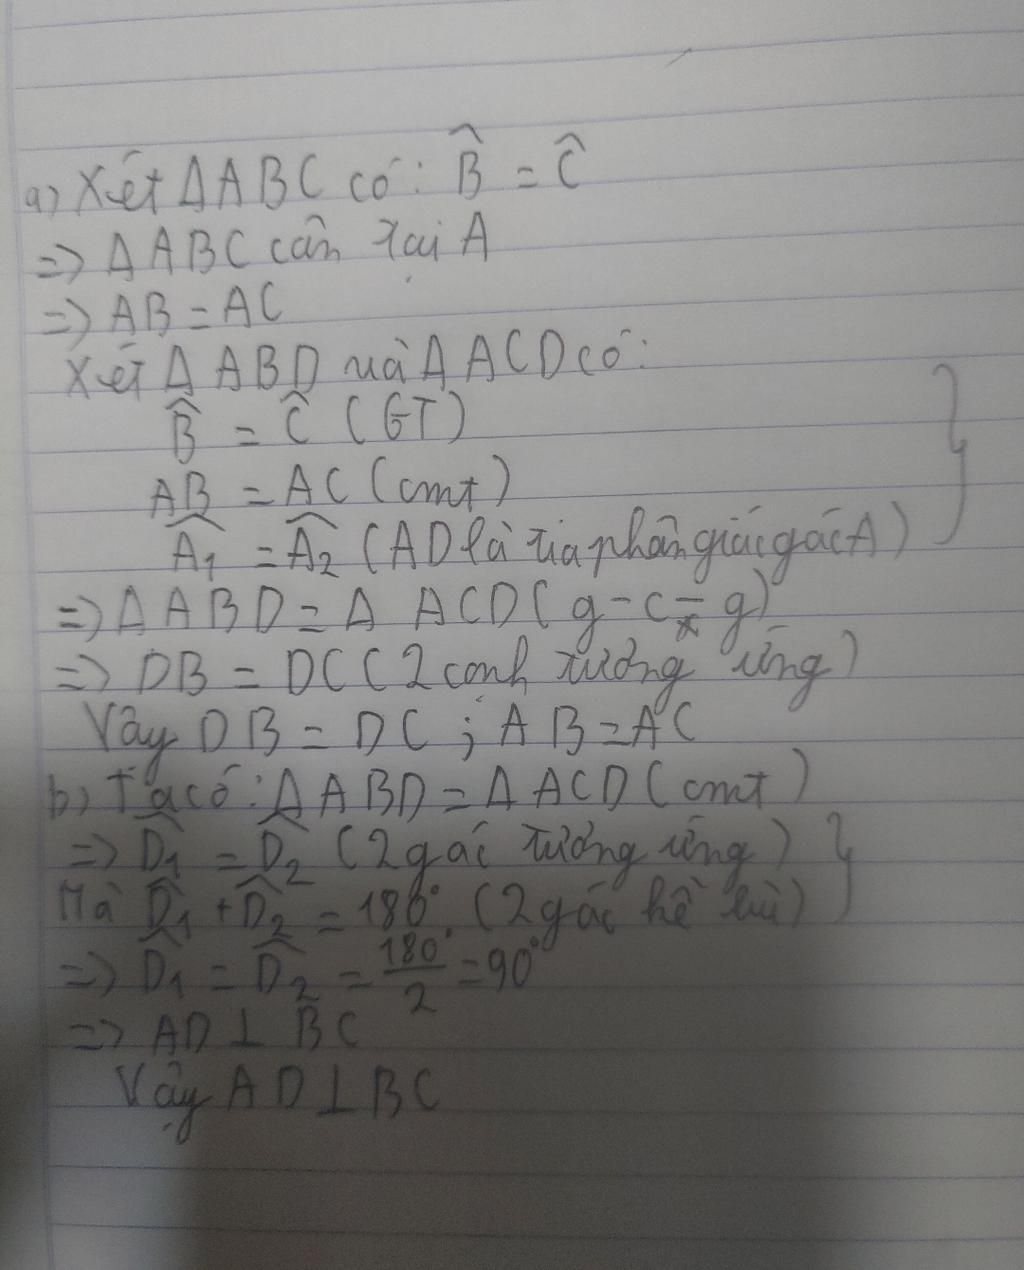 a) Xét ΔABC có: B̂ = Ĉ
=> ΔABC cân tại A
=> AB = AC
Xét ΔABD và ΔACD có:
B̂ = Ĉ (GT)
AB = AC (cmt)
Â₁ = Â₂ (AD là tia phân giác góc A)
=> ΔABD = ΔACD (g-c-g)
=> DB = DC (2 cạnh tương ứng)
Vậy DB = DC ; AB = AC
b) Ta có: ΔABD = ΔACD (cmt)
=> D̂₁ = D̂₂ (2 góc tương ứng)
Mà D̂₁ + D̂₂ = 180° (2 góc kề bù)
=> D̂₁ = D̂₂ = 180°/2 = 90°
=> AD ⊥ BC
Vậy AD ⊥ BC